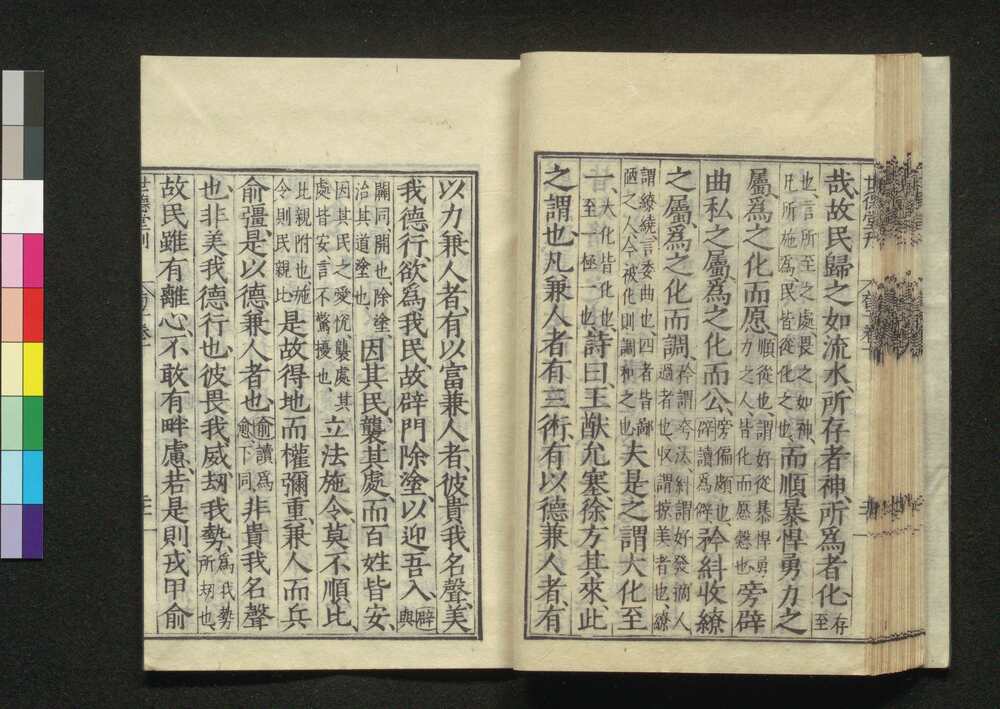 哉、故民歸之如流水、所存者神、所爲者化、存至
也、言所至之處畏之如神、凡所施爲、民皆從化之也、而順暴悍勇力之
屬爲之化而愿、順從也、謂好從暴悍勇力之人、皆化而愿慤也、旁辟
曲私之屬爲之化而公、旁偏頗也、辟讀爲僻、矜糾收繚
之屬爲之化而調、矜謂夸汰、糾謂好發摘人過者也、收謂掠美者也、繚
謂繚繞言委曲也、四者皆鄙陋之人、今被化則調和之也、夫是之謂大化至
一、大化皆化也、至一極一也、詩曰、王猷允塞、徐方其來、此
之謂也、凡兼人者有三術、有以德兼人者、有
以力兼人者、有以富兼人者、彼貴我名聲、美
我德行、欲爲我民、故辟門除塗、以迎吾入、辟與
闢同、開也、除塗、治其道塗也、因其民、襲其處而百姓皆安、
因其民之愛悅、襲處其處皆安、言不驚擾也、立法施令、莫不順比、
比親附也、施令則民親比是故得地而權彌重、兼人而兵
俞彊、是以德兼人者也、俞讀爲愈下同非貴我名聲
也、非美我德行也、彼畏我威、劫我勢、爲我勢所劫也、
故民雖有離心、不敢有畔慮、若是則、戎甲俞
世德堂刊